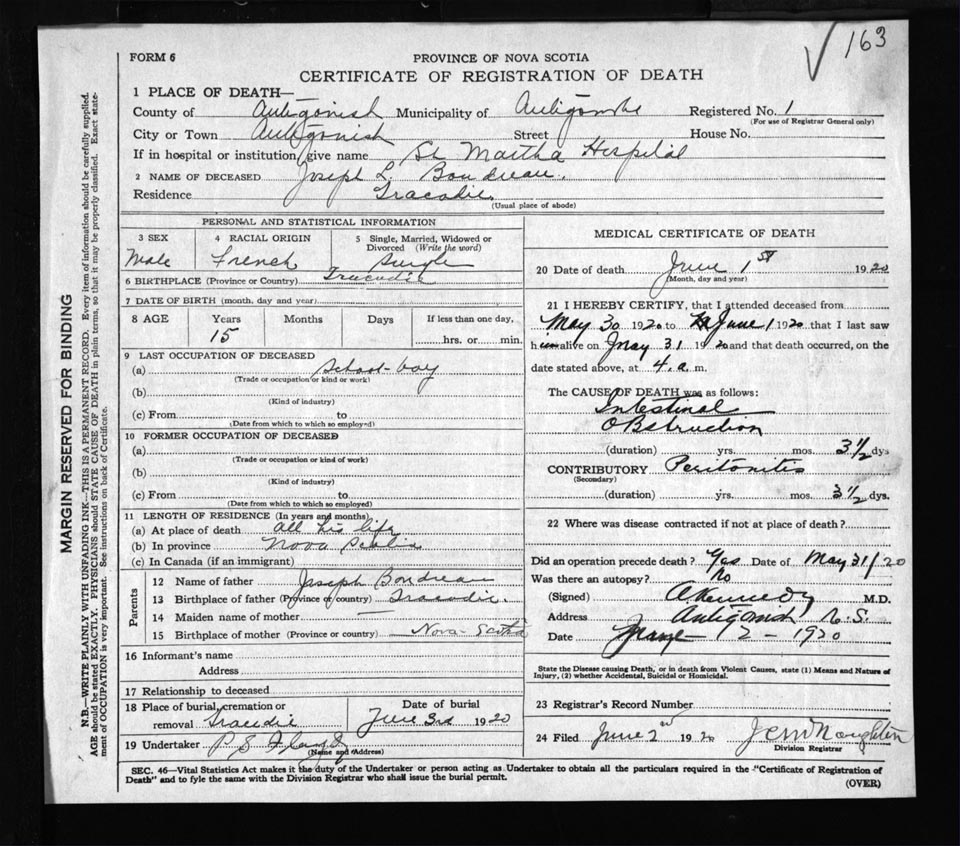 √ 163
FORM 6
PROVINCE OF NOVA SCOTIA
CERTIFICATE OF REGISTRATION OF DEATH
1 PLACE OF DEATH—
County of Antigonish Municipality of Antigonish Registered No. 1
(For use of Registrar General only)
City or Town Antigonish Street House No.
If in hospital or institution, give name St Martha Hospital
2 NAME OF DECEASED Joseph L. Boudreau.
Residence Tracadie
(Usual place of abode)
PERSONAL AND STATISTICAL INFORMATION
3 SEX 4 RACIAL ORIGIN 5 Single, Married, Widowed or Divorced (Write the word)
Male French Single
6 BIRTHPLACE (Province or Country) Tracadie
7 DATE OF BIRTH (month, day and year)
8 AGE Years Months Days If less than one day,
15 hrs. or min.
9 LAST OCCUPATION OF DECEASED
(a) School-boy
(Trade or occupation or kind or work)
(b)
(Kind of industry)
(c) From to
(Date from which to which so employed)
10 FORMER OCCUPATION OF DECEASED
(a)
(Trade or occupation or kind of work)
(b)
(Kind of industry)
(c) From to
(Date from which to which so employed)
11 LENGTH OF RESIDENCE (In years and months)
(a) At place of death all his life
(b) In province Nova Scotia
(c) In Canada (if an immigrant)
Parents
12 Name of father Joseph Boudreau
13 Birthplace of father (Province or country) Tracadie.
14 Maiden name of mother
15 Birthplace of mother (Province or country) Nova-Scotia
16 Informant's name
Address
17 Relationship to deceased
18 Place of burial, cremation or removal Tracadie
Date of burial June 3rd 1920
19 Undertaker P S
(Name and Address)
MEDICAL CERTIFICATE OF DEATH
20 Date of death June 1st 1920
(Month, day and year)
21 I HEREBY CERTIFY, that I attended deceased from
May 30 1920 to June 1 1920 that I last saw
him alive on May 31 1920 and that death occurred, on the
date stated above, at 4. a. m.
The CAUSE OF DEATH was as follows:
Intestinal
OBstruction
(duration) yrs. mos. 3 1/2 dys
CONTRIBUTORY Peritonitis
(Secondary)
(duration) yrs. mos. 3 1/2 dys.
22 Where was disease contracted if not at place of death?
Did an operation precede death? Yes Date of May 31/20
Was there an autopsy? No
(Signed) A Kennedy M.D.
Address Antigonish N.S.
Date 2 - 1920
State the Disease causing Death, or in death from Violent Causes, state (1) Means and Nature of
Injury, (2) whether Accidental, Suicidal or Homicidal.
23 Registrar's Record Number
24 Filed June 2nd 1920
Division Registrar
SEC. 46—Vital Statistics Act makes it the duty of the Undertaker or person acting as Undertaker to obtain all the particulars required in the "Certificate of Registration of
Death" and to fyle the same with the Division Registrar who shall issue the burial permit.
(OVER)
MARGIN RESERVED FOR BINDING
N.B.—WRITE PLAINLY WITH UNFADING INK—THIS IS A PERMANENT RECORD. Every item of information should be carefully supplied.
AGE should be stated EXACTLY. PHYSICIANS should STATE CAUSE OF DEATH in plain terms, so that it may be properly classified. Exact statement of OCCUPATION is very important. See instructions on back of Certificate.